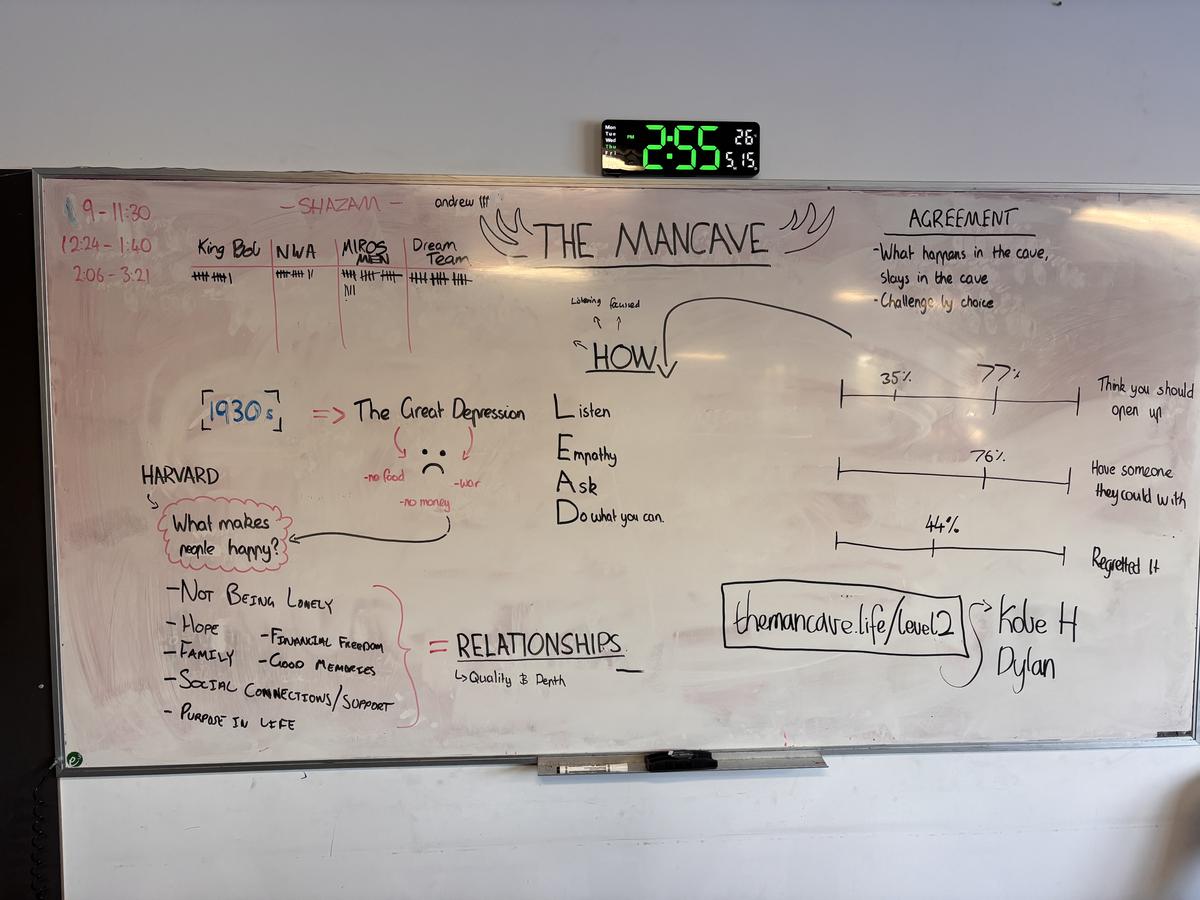 Mon
Tue
Wed
Thu
Fri
PM
2:55
26
5.15
9-11:30
12:24-1:40
2:06-3:21
-SHAZAM-
andrew
King Bob
NWA
MIROS MEN
Dream Team
THE MANCAVE
AGREEMENT
-What happens in the cave,
stays in the cave
-Challenge by choice
Listening
focused
HOW
Listen
Empathy
Ask
Do what you can.
1930s
=> The Great Depression
-no food
-war
-no money
HARVARD
What makes
people happy?
-NOT BEING LONELY
-HOPE
-FINANCIAL FREEDOM
-FAMILY
-GOOD MEMORIES
-SOCIAL CONNECTIONS/SUPPORT
-PURPOSE IN LIFE
= RELATIONSHIPS
Quality & Depth
35%
77%
Think you should
open up
76%
Have someone
they could with
44%
Regretted It
themancave.life/level2
Kobe H
Dylan